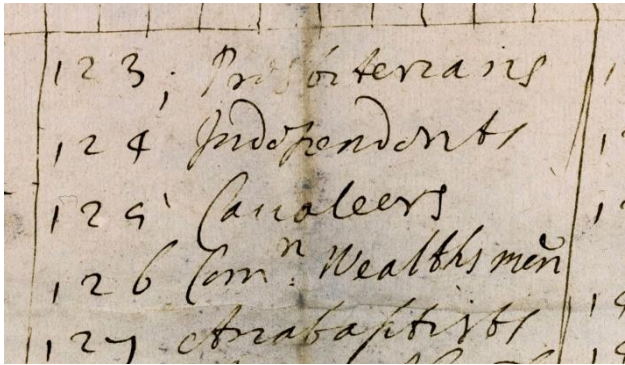 123; Presbiterians
124 Independents
125 Caualeers
126 Comn: Wealthsmen
127 Anabaptists